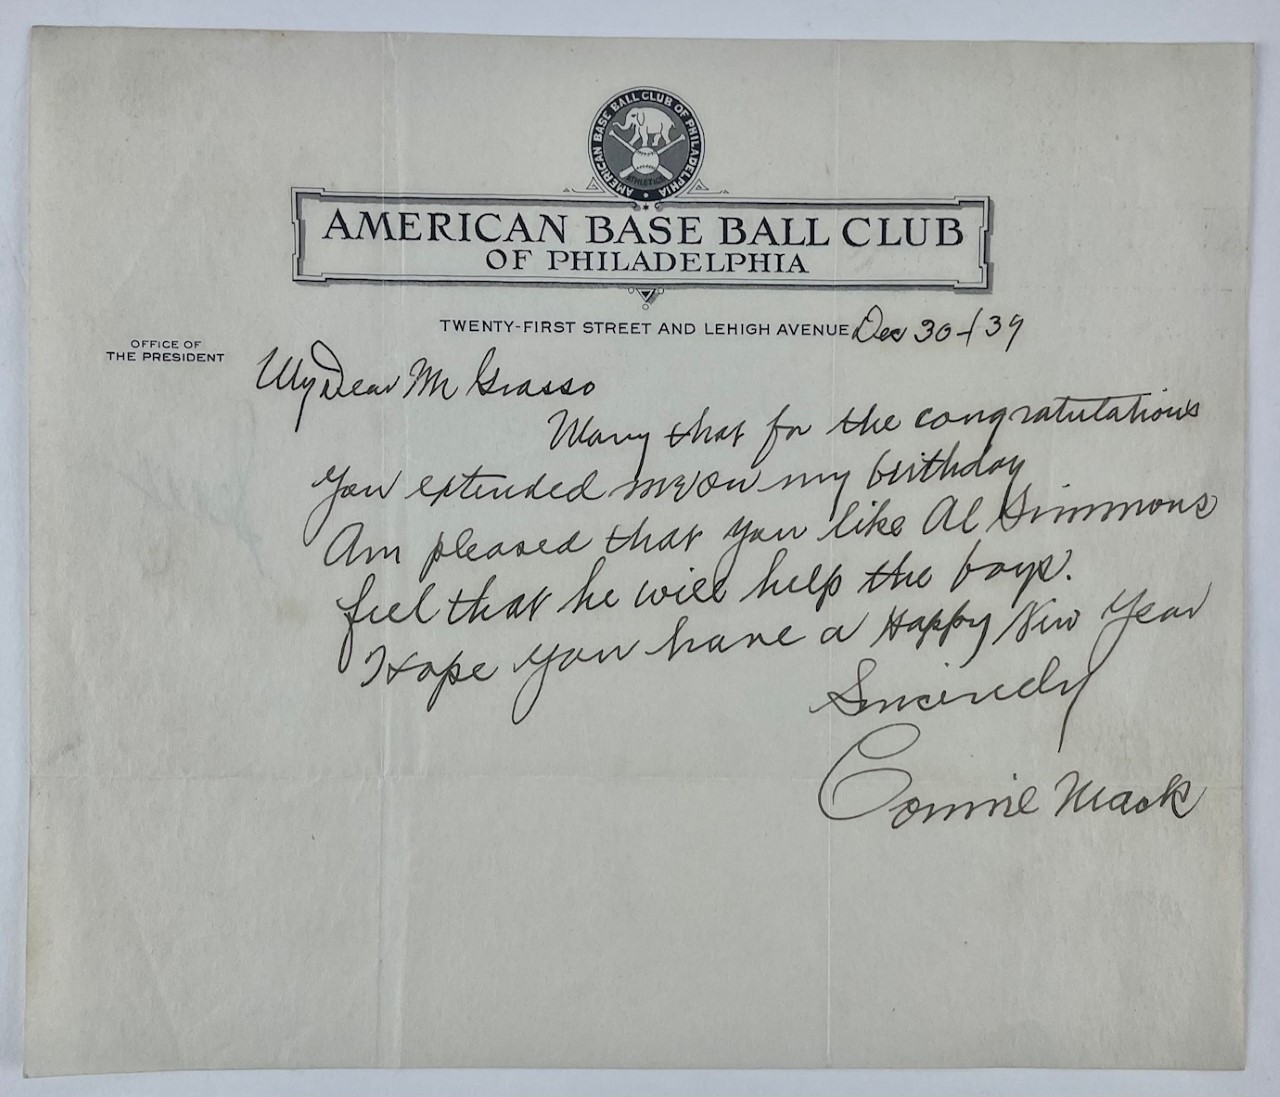 AMERICAN BASE BALL CLUB OF PHILADELPHIA
ATHLETICS
AMERICAN BASE BALL CLUB
OF PHILADELPHIA
TWENTY-FIRST STREET AND LEHIGH AVENUE Dec 30-/39
OFFICE OF
THE PRESIDENT
My Dear Mr Grasso
Many that for the congratutations
You extended me on my birthday
Am pleased that you like Al Simmons
feel that he will help the boys.
Hope you have a Happy New Year
Sincerely
Connie Mack